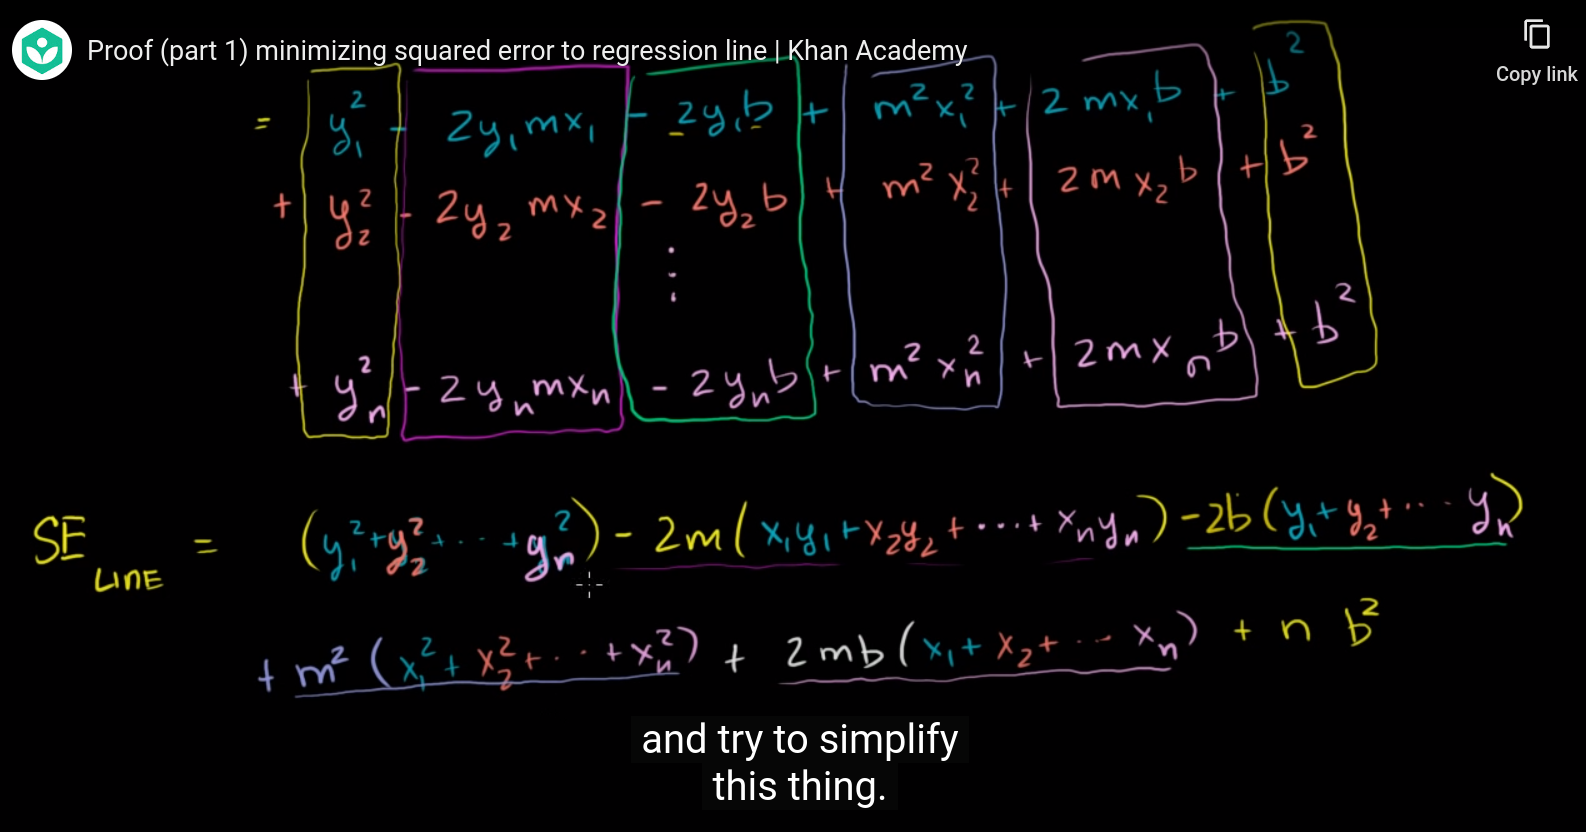 Proof (part 1) minimizing squared error to regression line | Khan Academy
Copy link
= y₁² - 2y₁mx₁ - 2y₁b + m²x₁² + 2mx₁b + b²
+ y₂² - 2y₂mx₂ - 2y₂b + m²x₂² + 2mx₂b + b²
⋮
+ yₙ² - 2yₙmxₙ - 2yₙb + m²xₙ² + 2mxₙb + b²
SE LINE = (y₁²+y₂²+...+yₙ²) - 2m(x₁y₁+x₂y₂+....+xₙyₙ) - 2b(y₁+y₂+... yₙ)
+ m²(x₁²+x₂²+...+xₙ²) + 2mb(x₁+x₂+... xₙ) + n b²
and try to simplify
this thing.